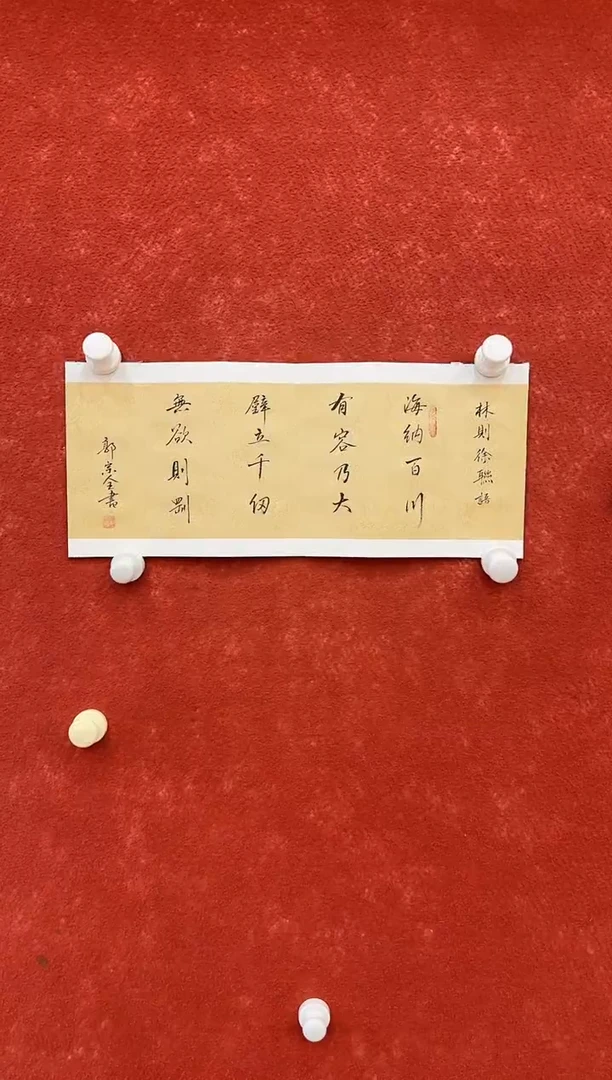 林則徐聯語
海納百川
有容乃大
壁立千仞
無欲則剛
郭宗全書